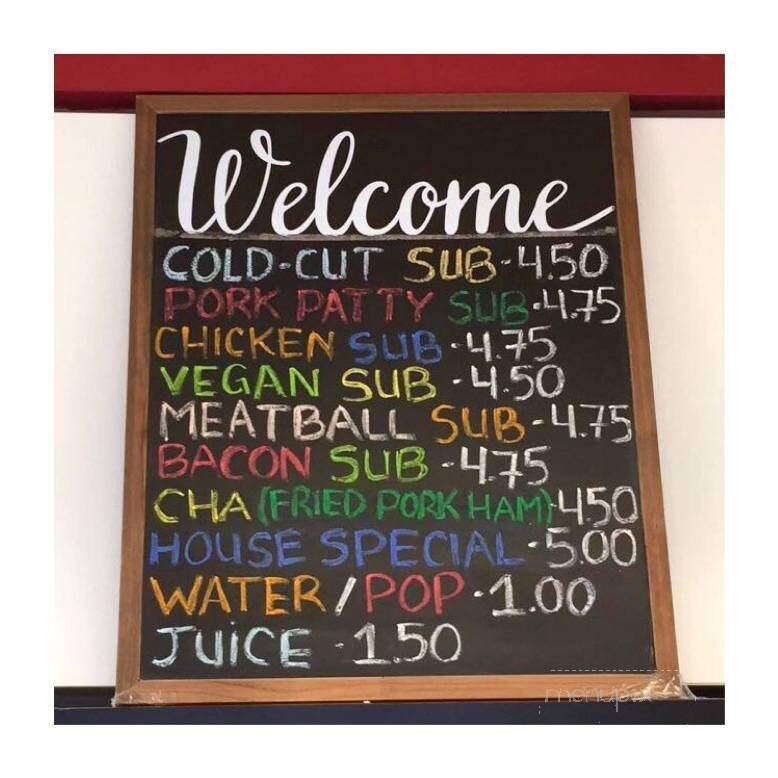 Welcome
COLD-CUT SUB-4.50
PORK PATTY SUB-4.75
CHICKEN SUB-4.75
VEGAN SUB -4.50
MEATBALL SUB-4.75
BACON SUB -4.75
CHA (FRIED PORK HAM)450
HOUSE SPECIAL -5.00
WATER/POP -1.00
JUiCE -1.50
menupix